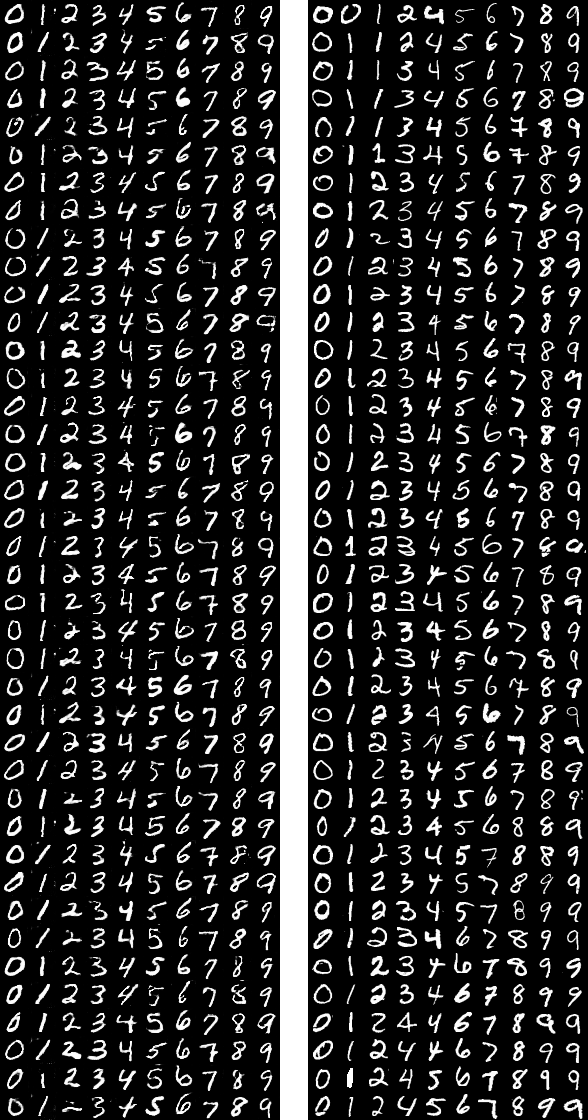 0 1 2 3 4 5 6 7 8 9
0 1 2 3 4 5 6 7 8 9
0 1 2 3 4 5 6 7 8 9
0 1 2 3 4 5 6 7 8 9
0 1 2 3 4 5 6 7 8 9
0 1 2 3 4 5 6 7 8 9
0 1 2 3 4 5 6 7 8 9
0 1 2 3 4 5 6 7 8 9
0 1 2 3 4 5 6 7 8 9
0 1 2 3 4 5 6 7 8 9
0 1 2 3 4 5 6 7 8 9
0 1 2 3 4 5 6 7 8 9
0 1 2 3 4 5 6 7 8 9
0 1 2 3 4 5 6 7 8 9
0 1 2 3 4 5 6 7 8 9
0 1 2 3 4 5 6 7 8 9
0 1 2 3 4 5 6 7 8 9
0 1 2 3 4 5 6 7 8 9
0 1 2 3 4 5 6 7 8 9
0 1 2 3 4 5 6 7 8 9
0 1 2 3 4 5 6 7 8 9
0 1 2 3 4 5 6 7 8 9
0 1 2 3 4 5 6 7 8 9
0 1 2 3 4 5 6 7 8 9
0 1 2 3 4 5 6 7 8 9
0 1 2 3 4 5 6 7 8 9
0 1 2 3 4 5 6 7 8 9
0 1 2 3 4 5 6 7 8 9
0 1 2 3 4 5 6 7 8 9
0 1 2 3 4 5 6 7 8 9
0 1 2 3 4 5 6 7 8 9
0 1 2 3 4 5 6 7 8 9
0 1 2 3 4 5 6 7 8 9
0 1 2 3 4 5 6 7 8 9
0 1 2 3 4 5 6 7 8 9
0 1 2 3 4 5 6 7 8 9
0 1 2 3 4 5 6 7 8 9
0 1 2 3 4 5 6 7 8 9
0 1 2 3 4 5 6 7 8 9
0 1 2 3 4 5 6 7 8 9
0 0 1 2 4 5 6 7 8 9
0 1 1 2 4 5 6 7 8 9
0 1 1 3 4 5 6 7 8 9
0 1 1 3 4 6 6 7 8 9
0 1 1 3 4 5 6 7 8 9
0 1 1 3 4 5 6 7 8 9
0 1 2 3 4 5 6 7 8 9
0 1 2 3 4 5 6 7 8 9
0 1 2 3 4 5 6 7 8 9
0 1 2 3 4 5 6 7 8 9
0 1 2 3 4 5 6 7 8 9
0 1 2 3 4 5 6 7 8 9
0 1 2 3 4 5 6 7 8 9
0 1 2 3 4 5 6 7 8 9
0 1 2 3 4 8 6 7 8 9
0 1 2 3 4 5 6 7 8 9
0 1 2 3 4 5 6 7 8 9
0 1 2 3 4 5 6 7 8 9
0 1 2 3 4 5 6 7 8 9
0 1 2 3 4 5 6 7 8 9
0 1 2 3 4 5 6 7 8 9
0 1 2 3 4 5 6 7 8 9
0 1 2 3 4 5 6 7 8 9
0 1 2 3 4 5 6 7 8 9
0 1 2 3 4 5 6 7 8 9
0 1 2 3 4 5 6 7 8 9
0 1 2 3 4 5 6 7 8 9
0 1 2 3 4 5 6 7 8 9
0 1 2 3 4 5 6 7 8 9
0 1 2 3 4 5 6 8 8 9
0 1 2 3 4 5 7 8 8 9
0 1 2 3 4 5 7 8 9 9
0 1 2 3 4 5 7 8 9 9
0 1 2 3 4 6 7 8 9 9
0 1 2 3 4 6 7 8 9 9
0 1 2 3 4 6 7 8 9 9
0 1 2 4 4 6 7 8 9 9
0 1 2 4 4 6 7 8 9 9
0 1 2 4 5 6 7 8 9 9
0 1 2 4 5 6 7 8 9 9